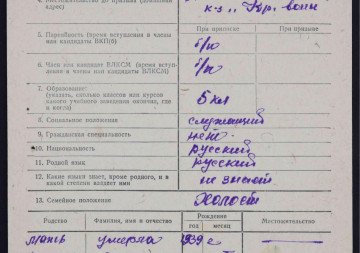 адрес)
к-з „Кр. воин
При приписке При призыве
5. Партийность (время вступления в члены
или кандидаты ВКП(б)
б/п
6. Член или кандидат ВЛКСМ (время вступ-
ления в члены или кандидаты ВЛКСМ)
б/п
7. Образование:
(указать, сколько классов или курсов
какого учебного заведения окончил, где
и когда)
5 кл
8. Социальное положение служащий
9. Гражданская специальность нет
10. Национальность русский
11. Родной язык русский
12. Какие языки знает, кроме родного, и в
какой степени владеет ими
не знает
13. Семейное положение холост
Родство Фамилия, имя и отчество Рождение Местожительство
год месяц
мать умерла 1939 г